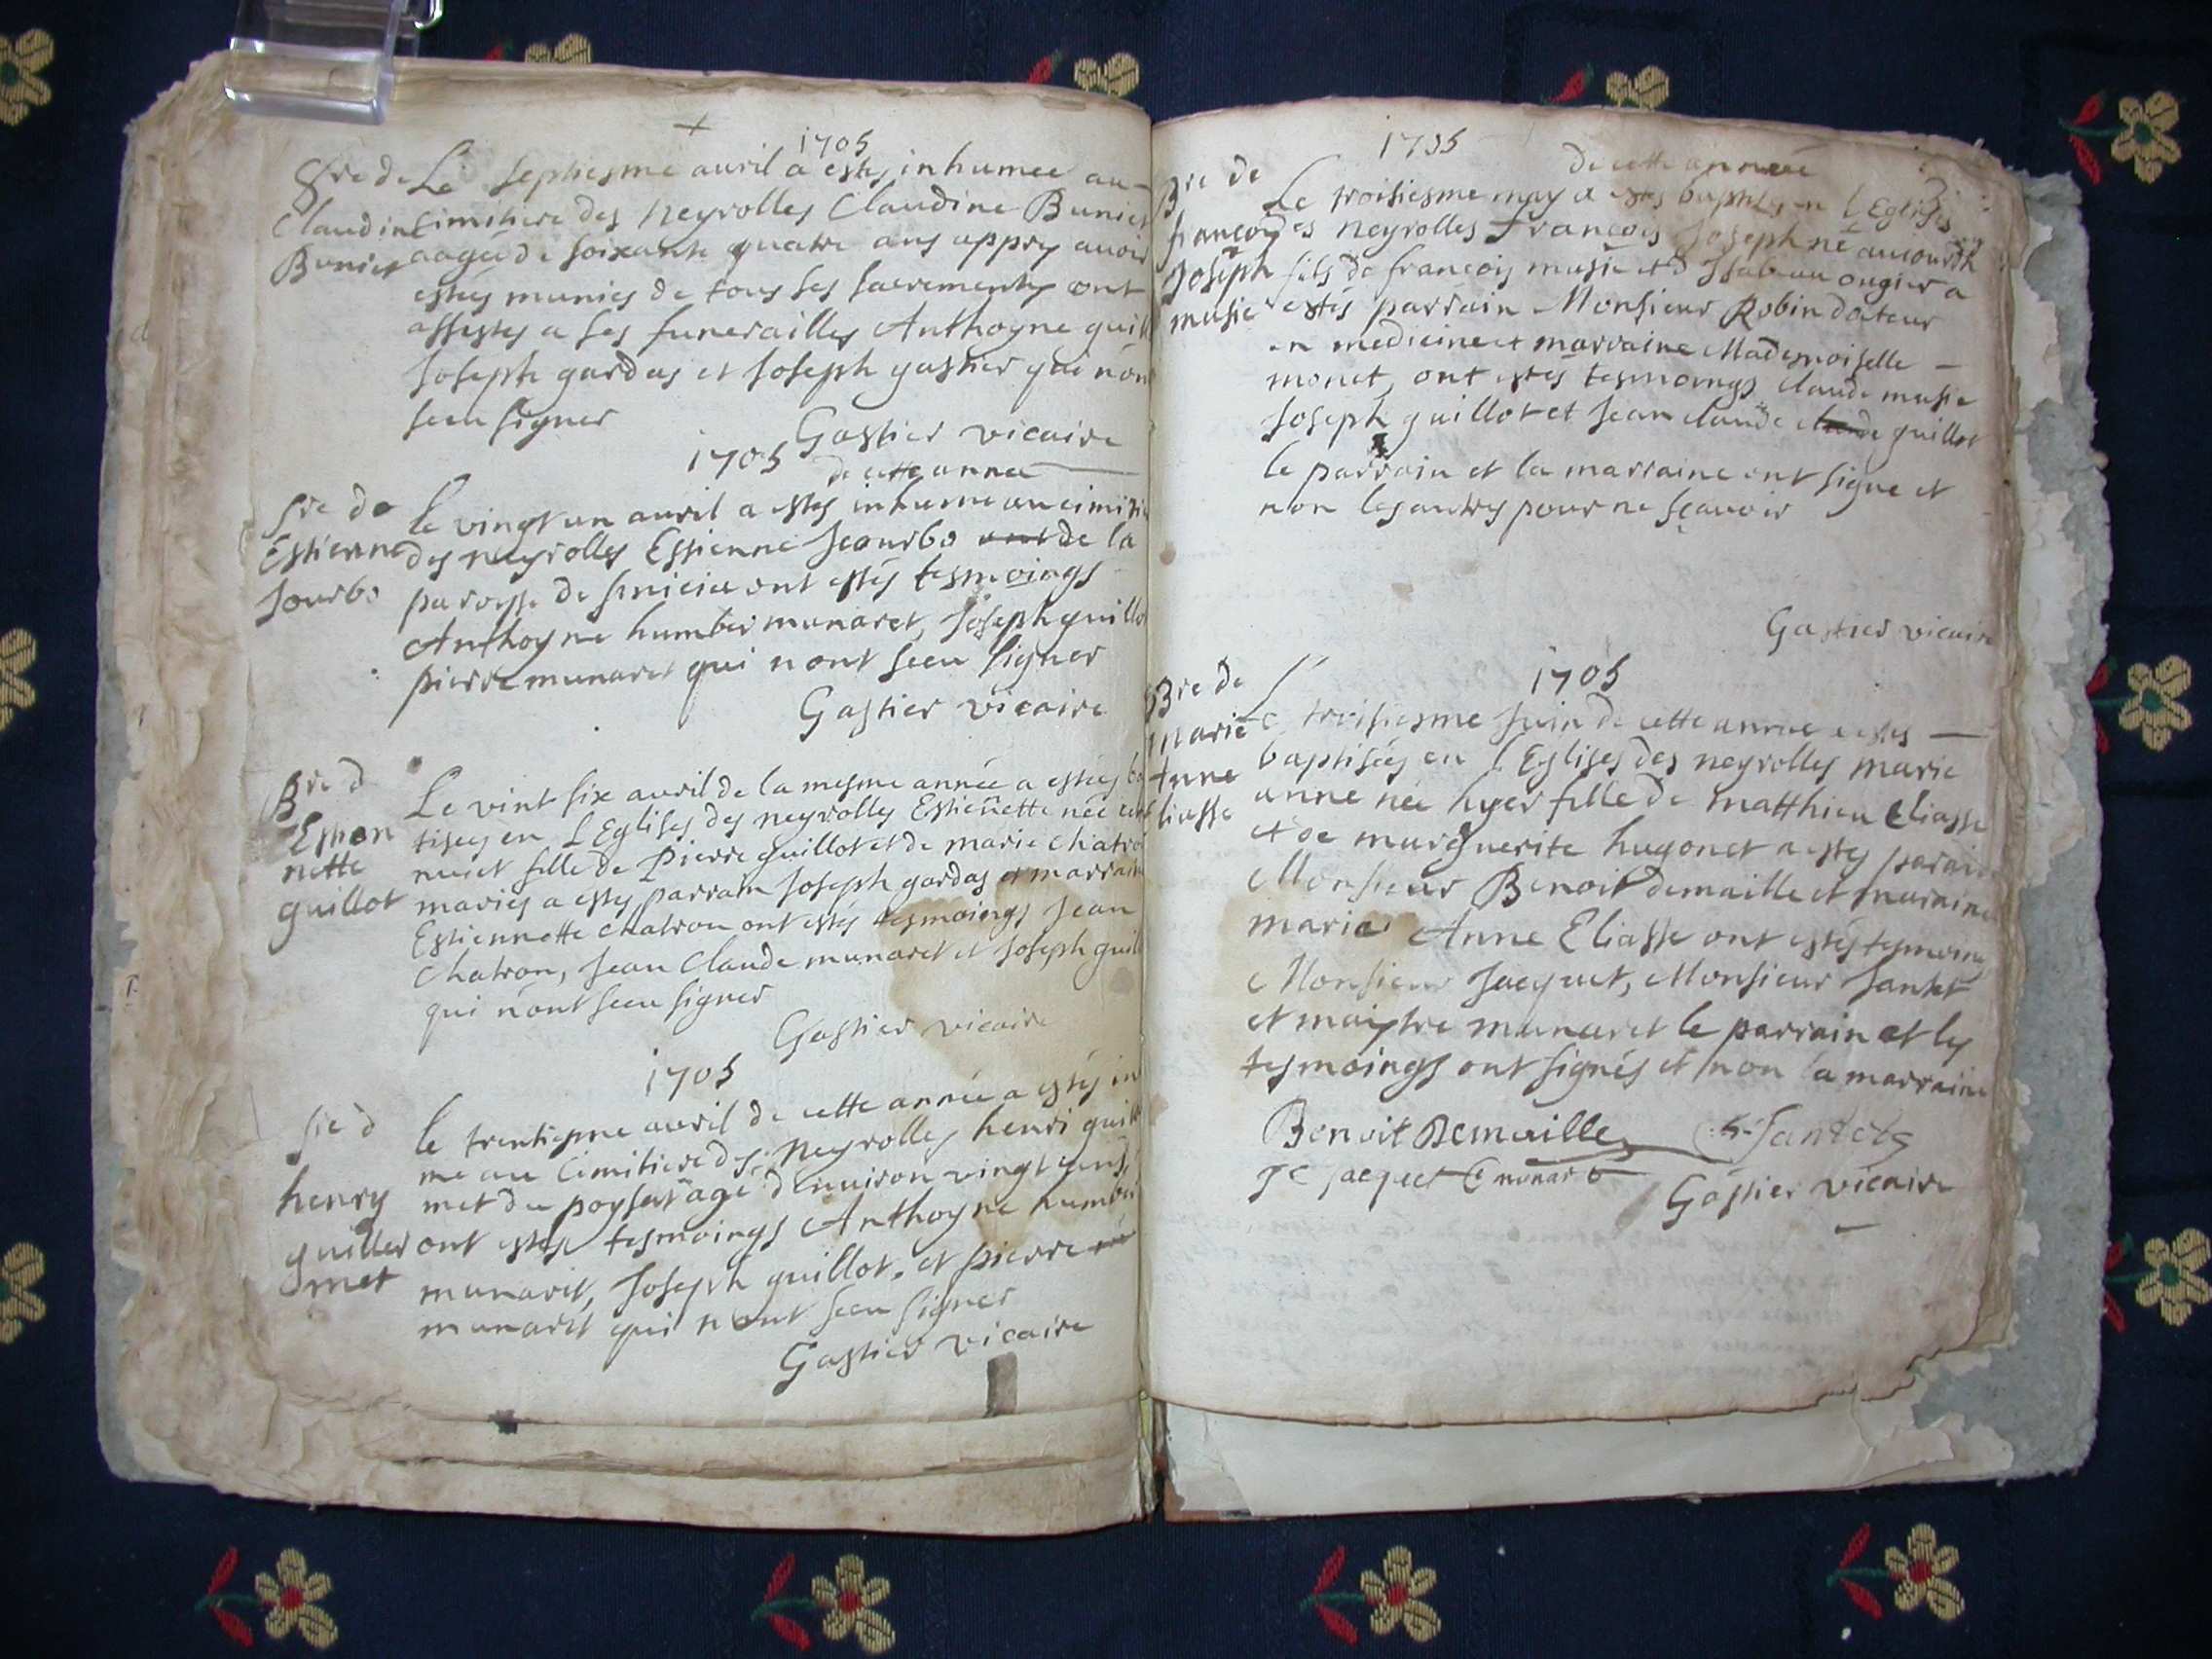 1705
Sre de Le septiesme auril a estes inhumee au
Claudine Cimitiere des Neyrolles Claudine Bunier
Bunier aagée de soixante quatre ans appres auoir
estes munies de tous ses sacrements ont
assestes a ses funerailles Anthoyne guill
Joseph gardas et Joseph gastier qui nón
sceu signer
Gastier vicaire
1705 de cette année
Sre de le vingt un auril a estes inhume au cimitie
Estienne des neyrolles Estienne Jeourbo de la
Jourbo paroesse de ont estés tesmoings
Anthoyne humber munaret, Joseph guillo
pierre munaret qui nont sceu signer
Gastier vicaire
Bre d Le vint six auril de la mesme année a estées ba
Estien tisees en L'Eglises des neyrolles Estiennette née
nette fille de Pierre guillot et de marie chatro
guillot maries a estes parrain Joseph gardas et marrain
Estiennette chatron ont estés tesmoings Jean
Chatron, Jean Claude munaret et Joseph guill
qui n'ont sceu signer
Gastier vicaire
1705
Sre d le trentiesme auril de cette année a estés in
me au Cimitiere des Neyrolles henri guill
henry met du poysat agé d'enuiron vingt
guiller ont estes tesmoings Anthoyne humber
met munaret, Joseph guillot, et pierre
munaret qui nont sceu signer
Gastier vicaire
1705
de cette année
Bre de Le troisiesme may a estes baptises en L'Eglises
francois des Neyrolles francois Joseph né aucourdh
Joseph fils de francois musie et d Isabeau ougier a
musie estés parrain Monsieur Robin docteur
en medicine et marraine Mademoiselle
monet, ont estes tesmoings claude musie
Joseph guillot et Jean claude guillot
le parrain et la marraine ont signe et
non les autres pour ne sçauoir
Gastier vicaire
1705
Bre de
marie Le troisiesme Juin de cette année a estes
Anne baptisées en L'Eglises des neyrolles marie
liasse anne née hyer fille de matthieu Eliasse
et de marguerite hugonet a estes parain
Monsieur Benoit demaille et maraine
marie Anne Eliasse ont estés tesmoing
Monsieur Jacquet, Monsieur Jantet
et maystre munaret le parrain et les
tesmoings ont signés et non la marraine
Benoit Demaille Jantets
Jacquet munar
Gastier vicaire